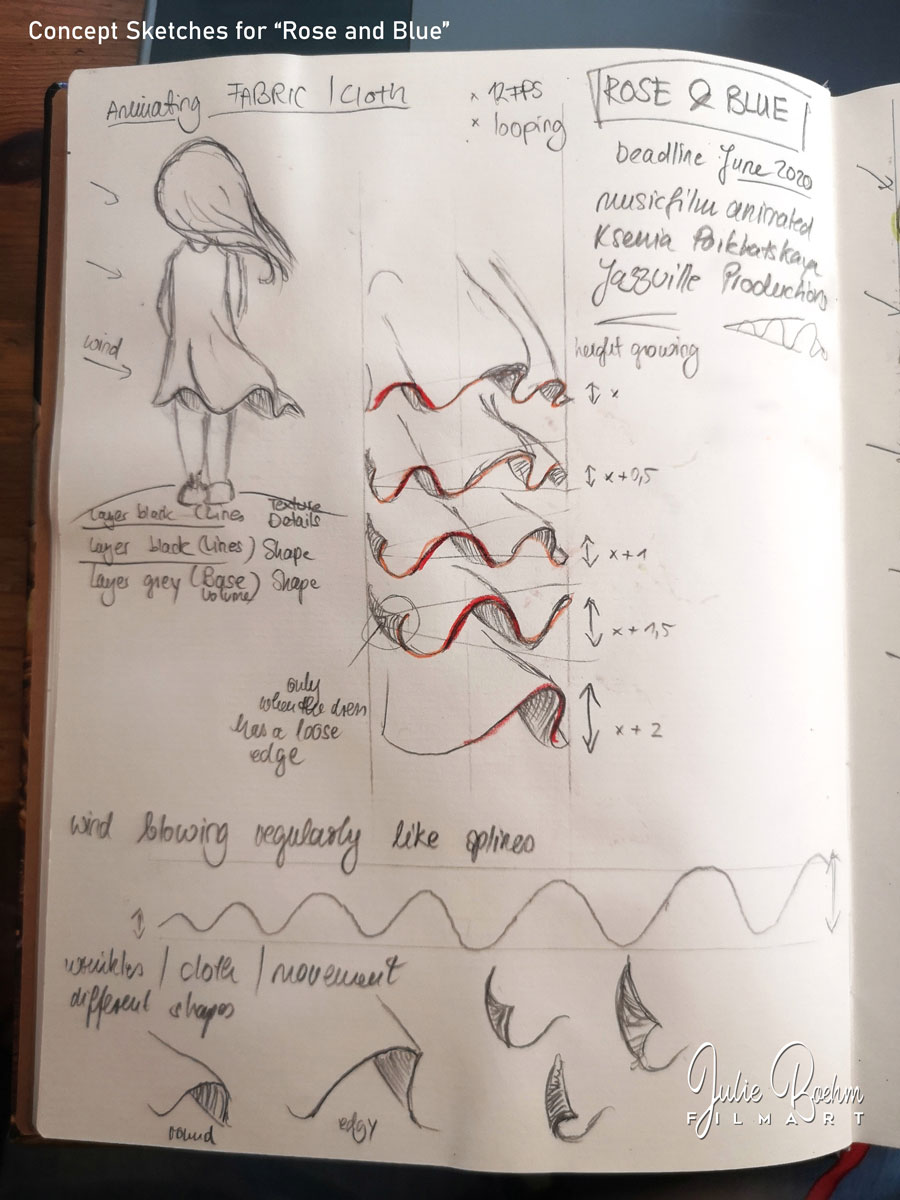 Concept Sketches for “Rose and Blue”
Animating FABRIC / Cloth
x 12 FPS
x looping
ROSE & BLUE
Deadline June 2020
musicfilm animated
Ksenia Parkhatskaya
Jazzville Productions
wind
height growing
x
x + 0,5
x + 1
x + 1,5
x + 2
Layer black (Lines Texture Details
Layer black (Lines) Shape
Layer grey (Base Volume) Shape
only
when the dress
has a loose
edge
wind blowing regularly like splines
wrinkles / cloth / movement
different shapes
round
edgy
Julie Boehm
FILMART